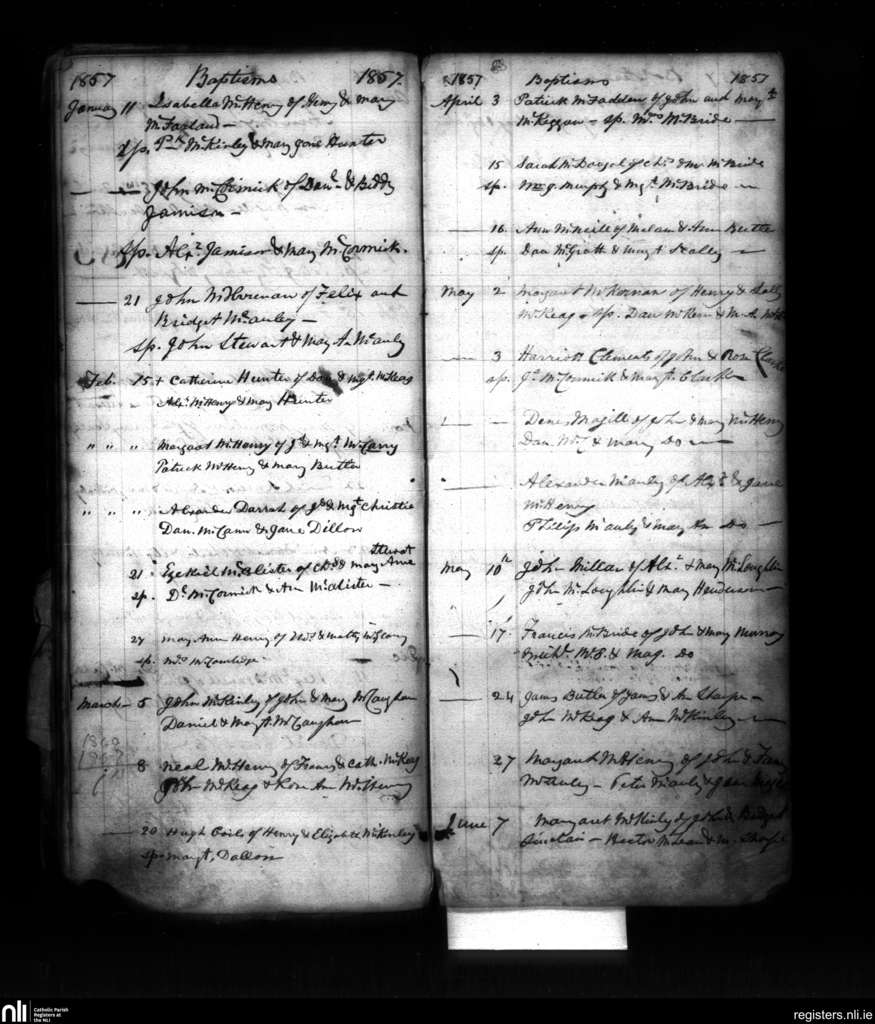 1857 Baptisms 1857.
January 11 Isabella McHenry of Henry & Mary
McFarland —
Sp. Pk McKinley & Mary Jane Hunter
John McCormick of Danl & Biddy
Jamison —
Sp. Alxr Jamison & Mary McCormick.
21 John of Felix and
Bridget McAuley —
Sp. John Stewart & Mary An McAuly
Feb. 15 + Catherine Hunter of Dan & Mgt McKeag
Alxr McHenry & Mary Hunter
" " " Margaret McHenry of Jn & Mgt McGarry
Patrick McHenry & Mary Butler
" " " Alexander Darrah of Jn & Mgt Christie
Dan. McCann & Jane Dillon
21 Ezekiel McAlister of Chs & Mary Anne
Sp. Dl McCormick & Ann McAlister —
27 Mary Ann Henry of &
Sp. Mrs
March 5 John McKinley of John & Mary McCaughan
Daniel & Margt McCaughan
1860
8 Neal McHenry of Francis & Cath. McKeag
John McKeag & Rose Ann McHenry
20 Hugh of Henry & Elizabeth McKinley
Sp. Margt. Dallon
1857 Baptisms 1857
April 3 Patrick McFadden of John and Mary
McKeggan — Sp. Mrs McBride —
15 Sarah of Chs & McBride
Sp. Murphy & Mgt McBride —
16 Ann McNeill of & Ann Butler
Sp. Dan McGratt & Mary Scally —
May 2 Margaret McKernan of Henry & Sally
McKeag — Sp. Dan &
3 Harriott Clements of John & Rose Clarke
Sp. Js McCormick & Margt Clark
Magill of John & Mary McHenry
Dan. & Mary Do —
Alexander McAuley of Alxr & Jane
McHenry
Philip McAuly & Mary An Do —
May 10th John Millar of Alxr & Mary McLoughlin
John McLoughlin & Mary Henderson —
17 Francis McBride of John & Mary Murray
McB. & Mag. Do
24 James Butler of James & An Sharpe —
John McKeag & Ann McKinley —
27 Margaret McHenry of John &
McAuley — Peter McAuly & Jane
June 7 Margaret McKinly of John & Bridget
Sinclair — Hector McLean & M. Sharpe
nli Catholic Parish
Registers at
the NLI
registers.nli.ie